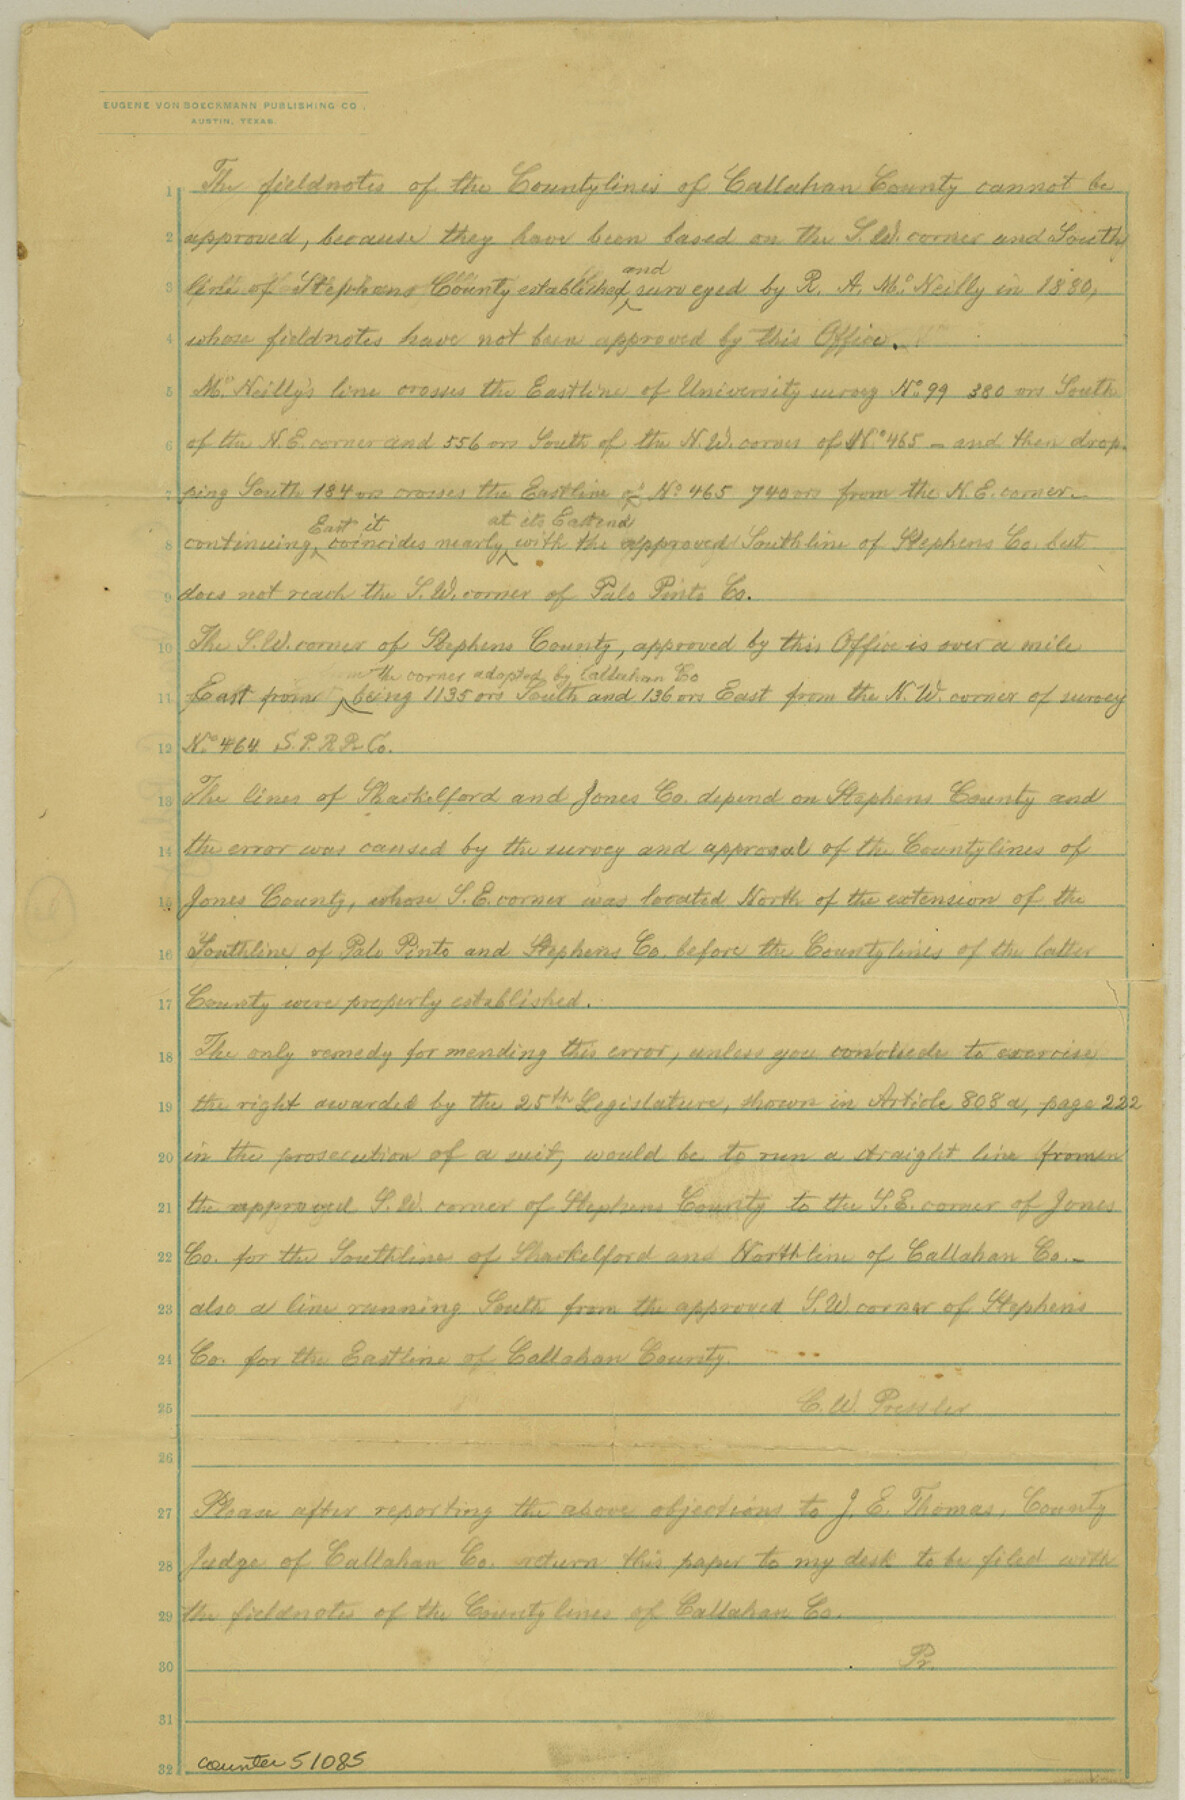 EUGENE VON BOECKMANN PUBLISHING CO.,
AUSTIN, TEXAS.
1 The fieldnotes of the Countylines of Callahan County cannot be
2 approved, because they have been based on the S.W. corner and South
and
3 line of Stephens County established, surveyed by R. A. Mc. Neilly in 1880,
4 whose fieldnotes have not been approved by this Office.
5 Mc. Neilly's line crosses the Eastline of University survey No. 99 380 vrs South
6 of the N.E. corner and 556 vrs South of the N.W. corner of No. 465 – and then drop-
7 ping South 184 vrs crosses the Eastline of No 465 740 vrs from the N.E. corner –
East it at its East end
8 continuing coincides nearly with the approved Southline of Stephens Co. but
9 does not reach the S.W. corner of Palo Pinto Co.
10 The S.W. corner of Stephens County, approved by this Office is over a mile
the corner adopted by Callahan Co
11 East from being 1135 vrs South and 136 vrs East from the N.W. corner of survey
12 No. 464 S.P.R.R. Co.
13 The lines of Shackelford and Jones Co. depend on Stephens County and
14 the error was caused by the survey and approval of the Countylines of
15 Jones County, whose S.E. corner was located North of the extension of the
16 Southline of Palo Pinto and Stephens Co. before the Countylines of the latter
17 County were properly established.
18 The only remedy for mending this error, unless you conclude to exercise
19 the right awarded by the 25th Legislature, shown in Article 808a, page 222
20 in the prosecution of a suit, would be to run a straight line from
21 the approved S.W. corner of Stephens County to the S.E. corner of Jones
22 Co. for the Southline of Shackelford and Northline of Callahan Co. –
23 also a line running South from the approved S.W. corner of Stephens
24 Co. for the Eastline of Callahan County.
25 C. W. Pressler
26
27 Please after reporting the above objections to J. E. Thomas, County
28 Judge of Callahan Co. return this paper to my desk to be filed with
29 the fieldnotes of the Countylines of Callahan Co.
30 Pr.
31
32 counter 51085